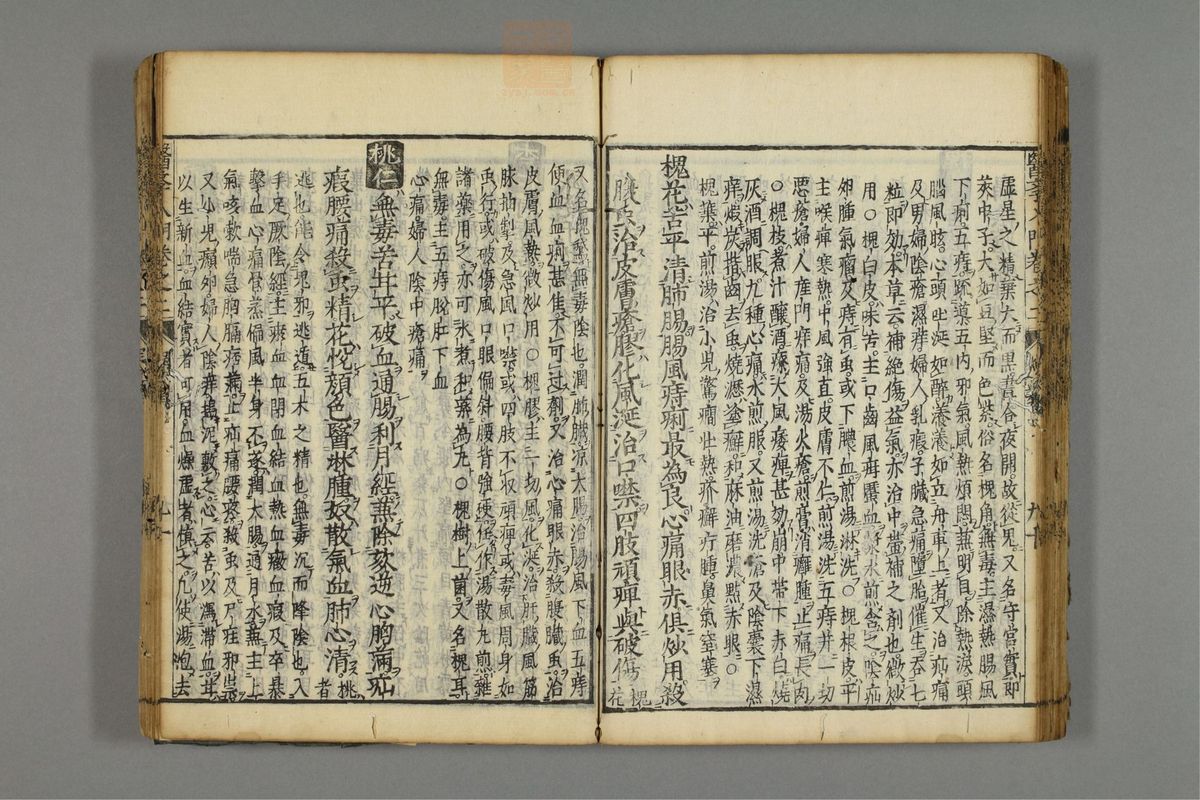 虛星之精葉大而黑晝合夜開故從鬼又名守宮實即
莢中子大如豆堅而色紫俗名槐角無毒主濕熱腸風
下痢五痔䟽導五內邪氣風熱煩悶兼明目除熱淚頭
腦風眩心頭吐涎如醉瀁瀁如立舟車上者又治疝痛
及男婦陰瘡濕痒婦人乳瘕子臟急痛墮胎催生吞七
粒即効本草云補絕傷益氣亦治中蠱補之劑也微炒
用○槐白皮味苦主口齒風疳䘌血漿水煎含之陰疝
卵腫氣瘤又痔有虫或下膿血煎湯淋洗○槐根皮平
主喉痺寒熱中風強直皮膚不仁煎湯洗五痔并一切
惡瘡婦人産門痒痛及湯火瘡煎膏消癰腫止痛長肉
○槐枝煮汁釀酒療大風痿痺甚効崩中帶下赤白燒
灰酒調服九種心痛水煎服又煎湯洗瘡及陰囊下濕
痒煅炭揩齒去虫燒瀝塗癬和麻油磨濃點赤眼○
槐葉平煎湯治小兒驚癇壯熱疥癬疔腫鼻氣窒塞
槐花苦平清肺腸腸風痔痢最為良心痛眼赤俱炒用殺
臟虫治皮膚瘡膠化風涎治口噤四肢頑痺與破傷
槐
花
又名槐鵝無毒陰也潤肺臟凉大腸治腸風下血五痔
便血血痢甚佳不可过劑又治心痛眼赤殺腹臟虫治
皮膚風熱微炒用○槐膠主一切風化涎治肝臟風筋
脉抽掣及急風口噤或四肢不収頑痺或毒風周身如
虫行或破傷風口眼偏斜腰背強硬任作湯散丸煎雜
諸藥用之亦可水煮和藥為丸○槐樹上菌又名槐耳
無毒主五痔脫肛下血
心痛婦人陰中瘡痛
桃仁
無毒苦甘平破血通腸利月經兼除欬逆心胸痛疝
瘕腰痛殺虫精花悅顔色醫淋腫奴散氣血肺心清
桃
者
逃也能令鬼邪逃遁五木之精也無毒沉而降陰也入
手足厥陰經主瘀血血閉血結血熱血瘕及卒暴
擊血心痛骨蒸偏風半身不遂潤大腸通月水兼主上
氣咳欬喘急胸膈痞滿止疝痛腰疼殺虫及尸疰邪祟
又小兒㿉卵婦人陰痒搗泥敷之心云苦以瀉滯血甘
以生新血血結實者可用血燥虛者慎之凡使湯泡去
醫學入門卷之二